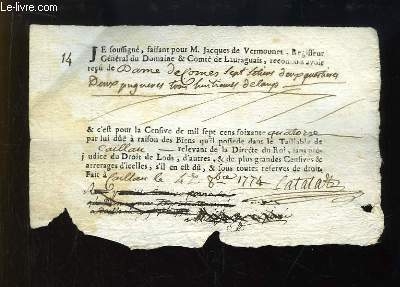 www.le-livre.com
14
JE soussigné, faisant pour M. Jacques de Vermounet, Regisseur
Général du Domaine & Comté de Lauraguais, reconnois avoir
reçu de Dame de Comes Sept Setiers deux quartieres
Deux pugneres trois huitiemes de
& c'est pour la Censive de mil sept cens soixante quatorze
par lui dûë à raison des Biens qu'il possede dans le Taillable de
Caillau relevant de la Directe du Roi, sans pré-
judice du Droit de Lods, d'autres, & de plus grandes Censives &
arrerages d'icelles, s'il en est dû, & sous toutes reserves de droit.
Fait à Caillau le 4e 8bre 1774